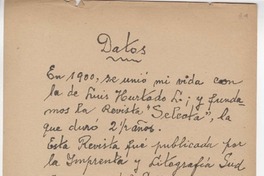 Datos
En 1900, se unió mi vida con
la de Luis Hurtado L.; y funda-
mos la Revista "Selecta", la
que duró 2½ años.
Esta Revista fué publicada por
la Imprenta y Litografía Sud